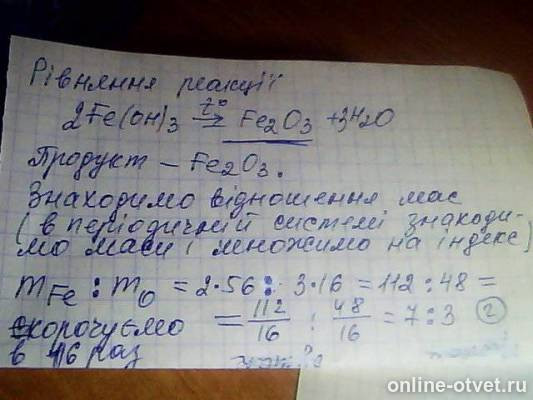 Рівняння реакції
2Fe(OH)3 t° → Fe2O3 + 3H2O
Продукт – Fe2O3.
Знаходимо відношення мас
(в періодичній системі знаходи-
мо маси і множимо на індекс)
mFe : mO = 2·56 : 3·16 = 112 : 48 =
скорочуємо = 112/16 : 48/16 = 7:3 2)
в 16 раз
online-otvet.ru